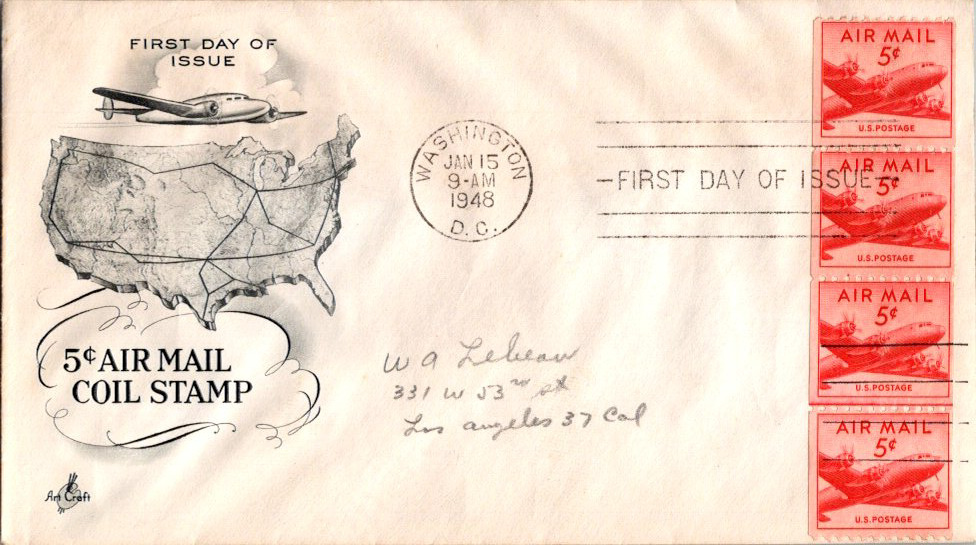 FIRST DAY OF
ISSUE
5¢ AIR MAIL
COIL STAMP
Art Craft
WASHINGTON
JAN 15
9-AM
1948
D.C.
FIRST DAY OF ISSUE
W A Lebeau
331 W 53rd st
Los angeles 37 Cal
AIR MAIL
5¢
U.S. POSTAGE
AIR MAIL
5¢
U.S. POSTAGE
AIR MAIL
5¢
U.S. POSTAGE
AIR MAIL
5¢
U.S. POSTAGE